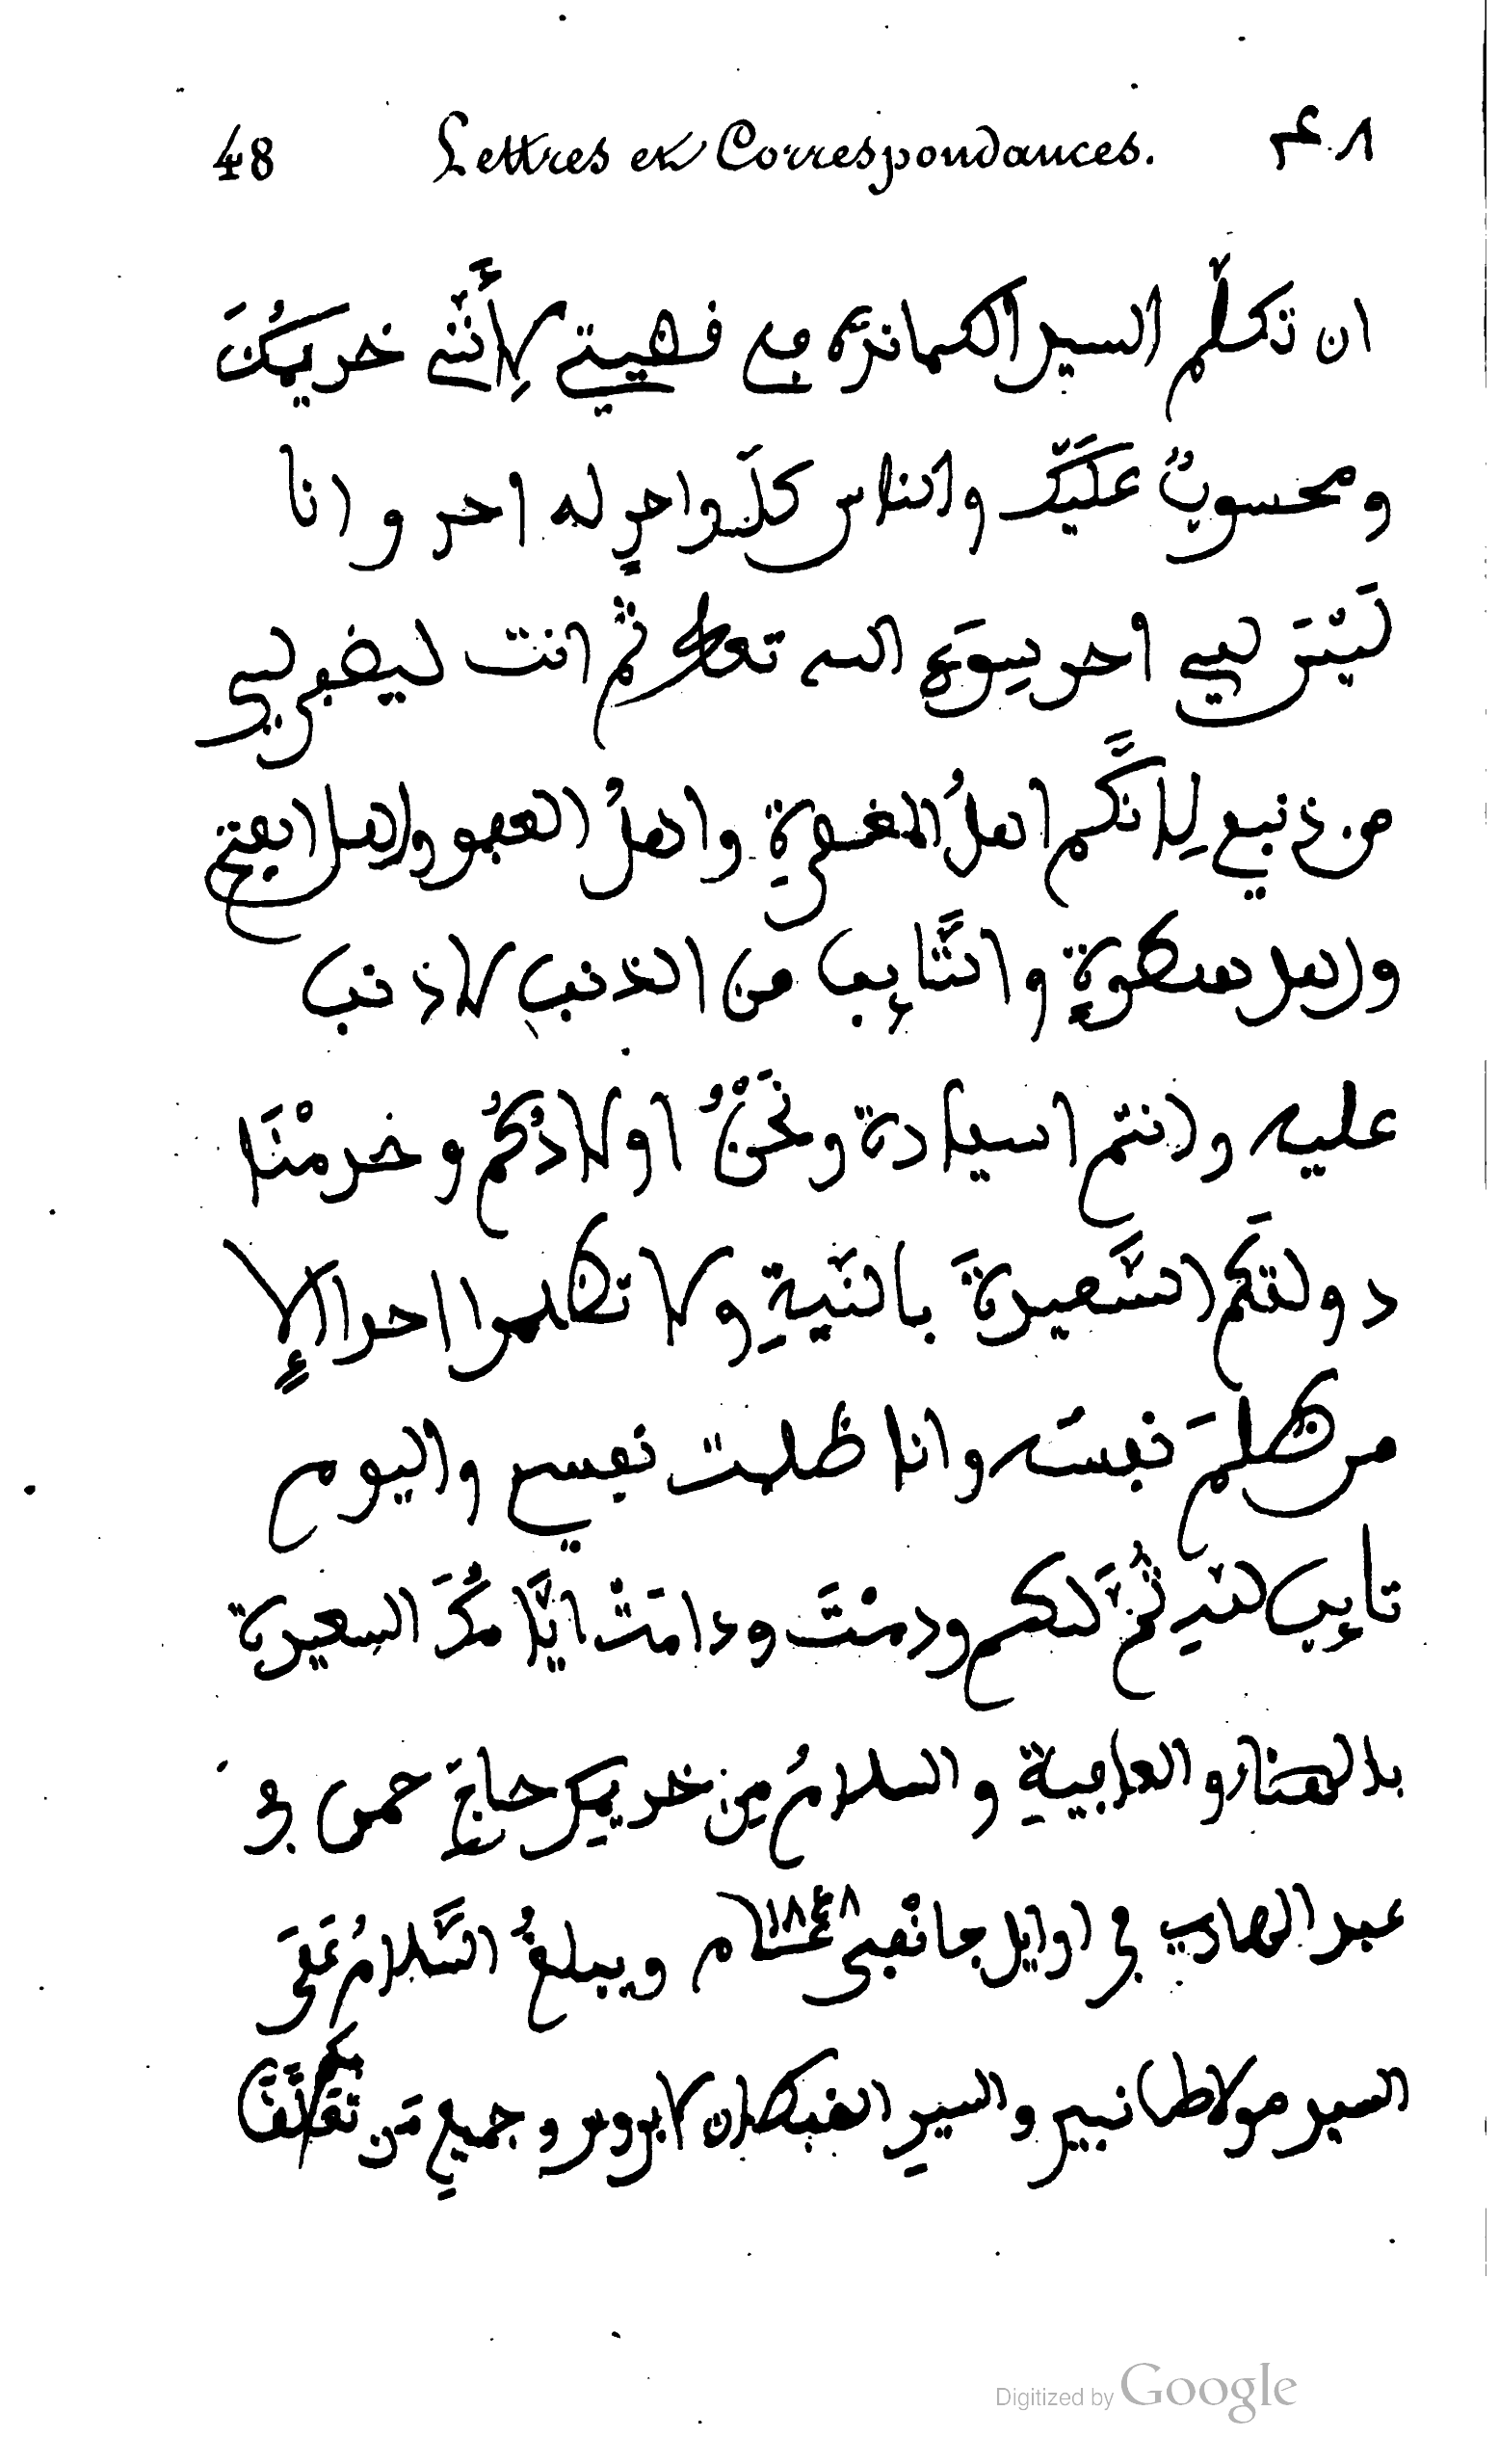 48 Lettres et Correspondances. ۴۸
ان تكلّم السيد الكماندَه في قضيتي لِأَنّني خديمُكَ
ومحسوبٌ عليّك والناس كلّ واحدٍ له احد وانا
لَيْسَ ليي احد سِوَى الله تعالى ثُم انت ليغفر ليي
من ذنبي لِانَّكُم اهلُ المغفرةِ واهلُ العفو واهل
واهل سطوةٍ والتَّايِب من الذنبِ لا ذنب
عليه وانتم اسيادة ونَحْنُ اولادُكُم وخدمْنَا
دولتكَم السَّعيدةَ بالنّيةِ ولا تظلموا احدا إلا
من ظلمَ نفسَه وانا ظلمت نفسي واليوم
تايِب لله ثُمَّ لكم ودمْتَ ودامَتْ ايَّامُكُمَ السعيدة
بالهنا والعافيةِ والسلامُ مِن خديمِك حاجّ حمن بو
عبد الهادي في اوايل جانْفي ١٨٤٨ سنة م ويبلغُ السَّلامُ عَلَى
السيد مولاطا نيير والسيدِ القبطان لابروس وجميعِ مَن
Digitized by Google